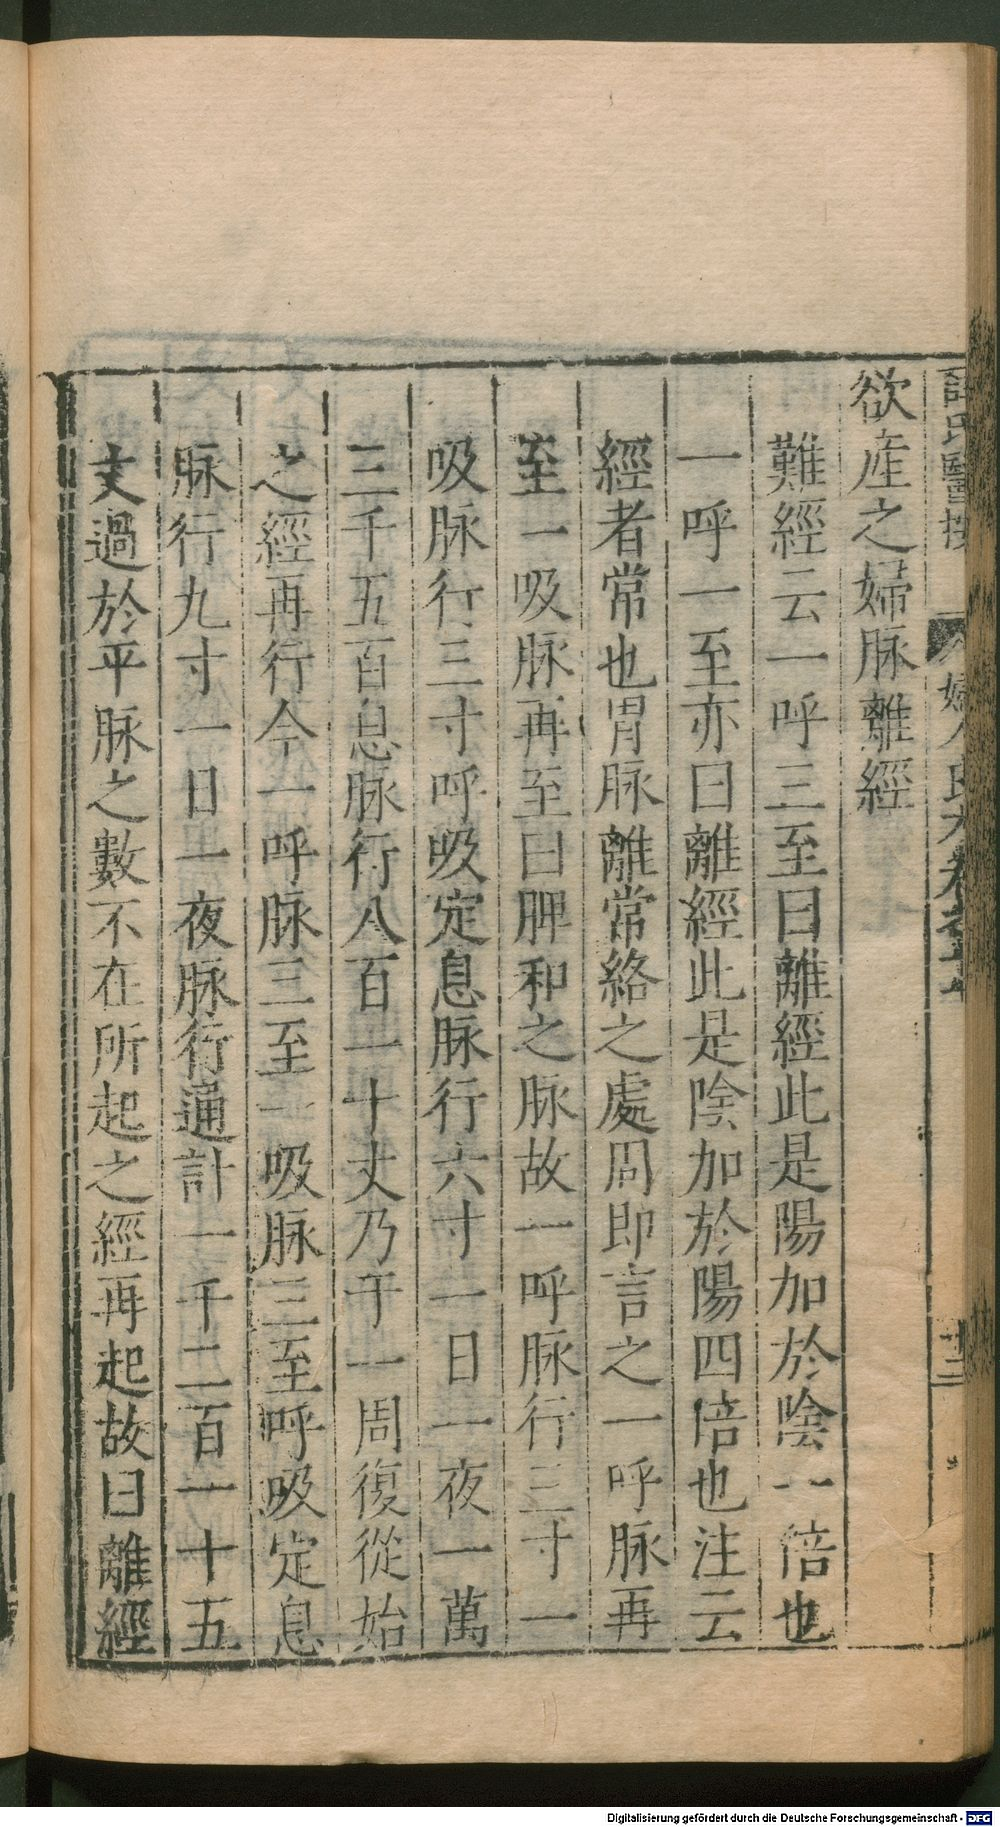 欲産之婦脉離經
難經云一呼三至曰離經此是陽加於陰一倍也
一呼一至亦曰離經此是陰加於陽四倍也注云
經者常也胃脉離常絡之處周即言之一呼脉再
至一吸脉再至曰脾和之脉故一呼脉行三寸一
吸脉行三寸呼吸定息脉行六寸一日一夜一萬
三千五百息脉行八百一十丈乃于一周復從始
之經再行今一呼脉三至一吸脉三至呼吸定息
脉行九寸一日一夜脉行通計一千二百一十五
丈過於平脉之數不在所起之經再起故曰離經
十二
Digitalisierung gefördert durch die Deutsche Forschungsgemeinschaft - DFG